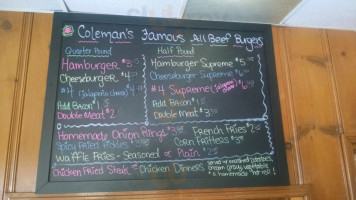 Coleman's Famous All Beef Burgers
Quarter Pound
Hamburger $3
Cheeseburger $4
#4 (jalapeño cheese) $4
Add Bacon $1
Double Meat $2
Half Pound
Hamburger Supreme $5
Cheeseburger Supreme $6
#4 Supreme (jalapeño cheese) $6
Add Bacon $1
Double Meat $3
Homemade Onion Rings $3
Spicy Fried Pickles $3
French Fries $2
Corn Fritters $3
Waffle Fries - Seasoned or Plain $2
Chicken Fried Steak or Chicken Dinners
served w/ mashed potatoes,
cream gravy, vegetable
& homemade hot roll!